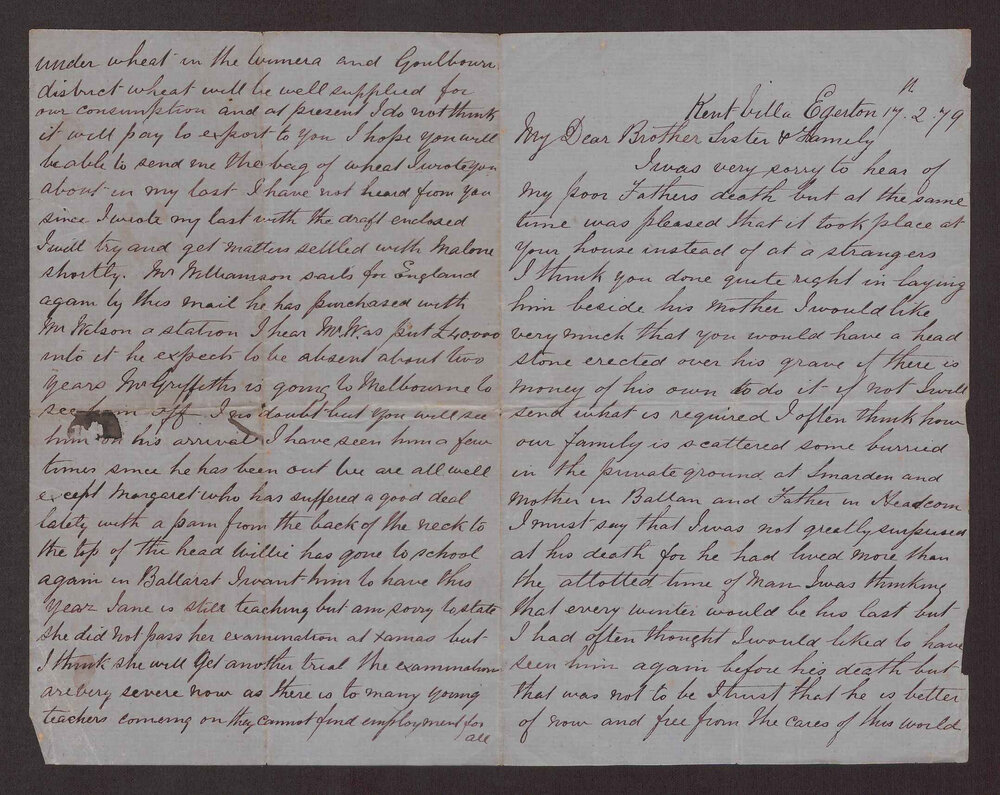 Kent Villa Egerton 17th. 2. 79
My Dear Brother Sister & Family
I was very sorry to hear of
my poor Fathers death but at the same
time was pleased that it took place at
your house instead of at a strangers
I think you done quite right in laying
him beside his Mother I would like
very much that you would have a head
stone erected over his grave if there is
money of his own to do it if not I will
send what is required I often think how
our family is scattered some burried
in the private ground at Smarden and
Mother in Ballan and Father in Headcorn
I must say that I was not greatly surprised
at his death for he had lived more than
the attotted time of man I was thinking
that every winter would be his last but
I had often thought I would liked to have
seen him again before his death but
that was not to be I trust that he is better
of now and free from the cares of this world
under wheat in the Wimera and Goulbourn
district wheat will be well supplied for
our consumption and at present I do not think
it will pay to export to you I hope you will
be able to send me the bag of wheat I wrote you
about in my last I have not heard from you
since I wrote my last with the draft enclosed
I will try and get matters settled with Malone
shortly. Mr Williamson sails for England
again by this mail he has purchased with
Mr Wilson a station I hear Mr W. as put £40,000
into it he expects to be absent about two
years Mr Griffiths is going to Melbourne to
see him off I no doubt but you will see
him on his arrival I have seen him a few
times since he has been out We are all well
except Margaret who has suffered a good deal
lately with a pain from the back of the neck to
the top of the head Willie has gone to school
again in Ballarat I want him to have this
year Jane is still teaching but am sorry to state
she did not pass her examination at xamas but
I think she will get another trial the examinations
are very severe now as there is to many young
teachers comeing on they cannot find employment for
all